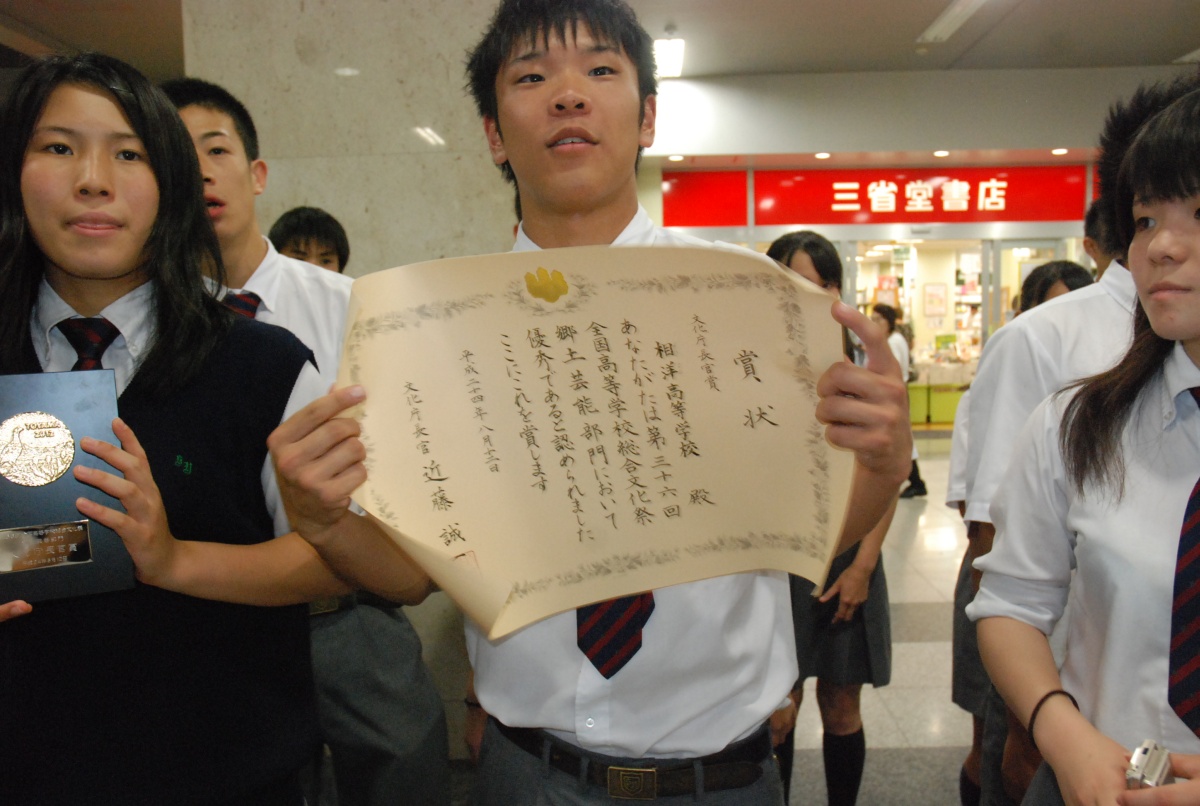 三省堂書店
賞状
文化庁長官賞
相洋高等学校 殿
あなたがたは第三十六回
全国高等学校総合文化祭
郷土芸能部門において
優秀であると認められました
ここにこれを賞します
平成二十四年八月十二日
文化庁長官 近藤誠一
TOYAMA
2012
SY